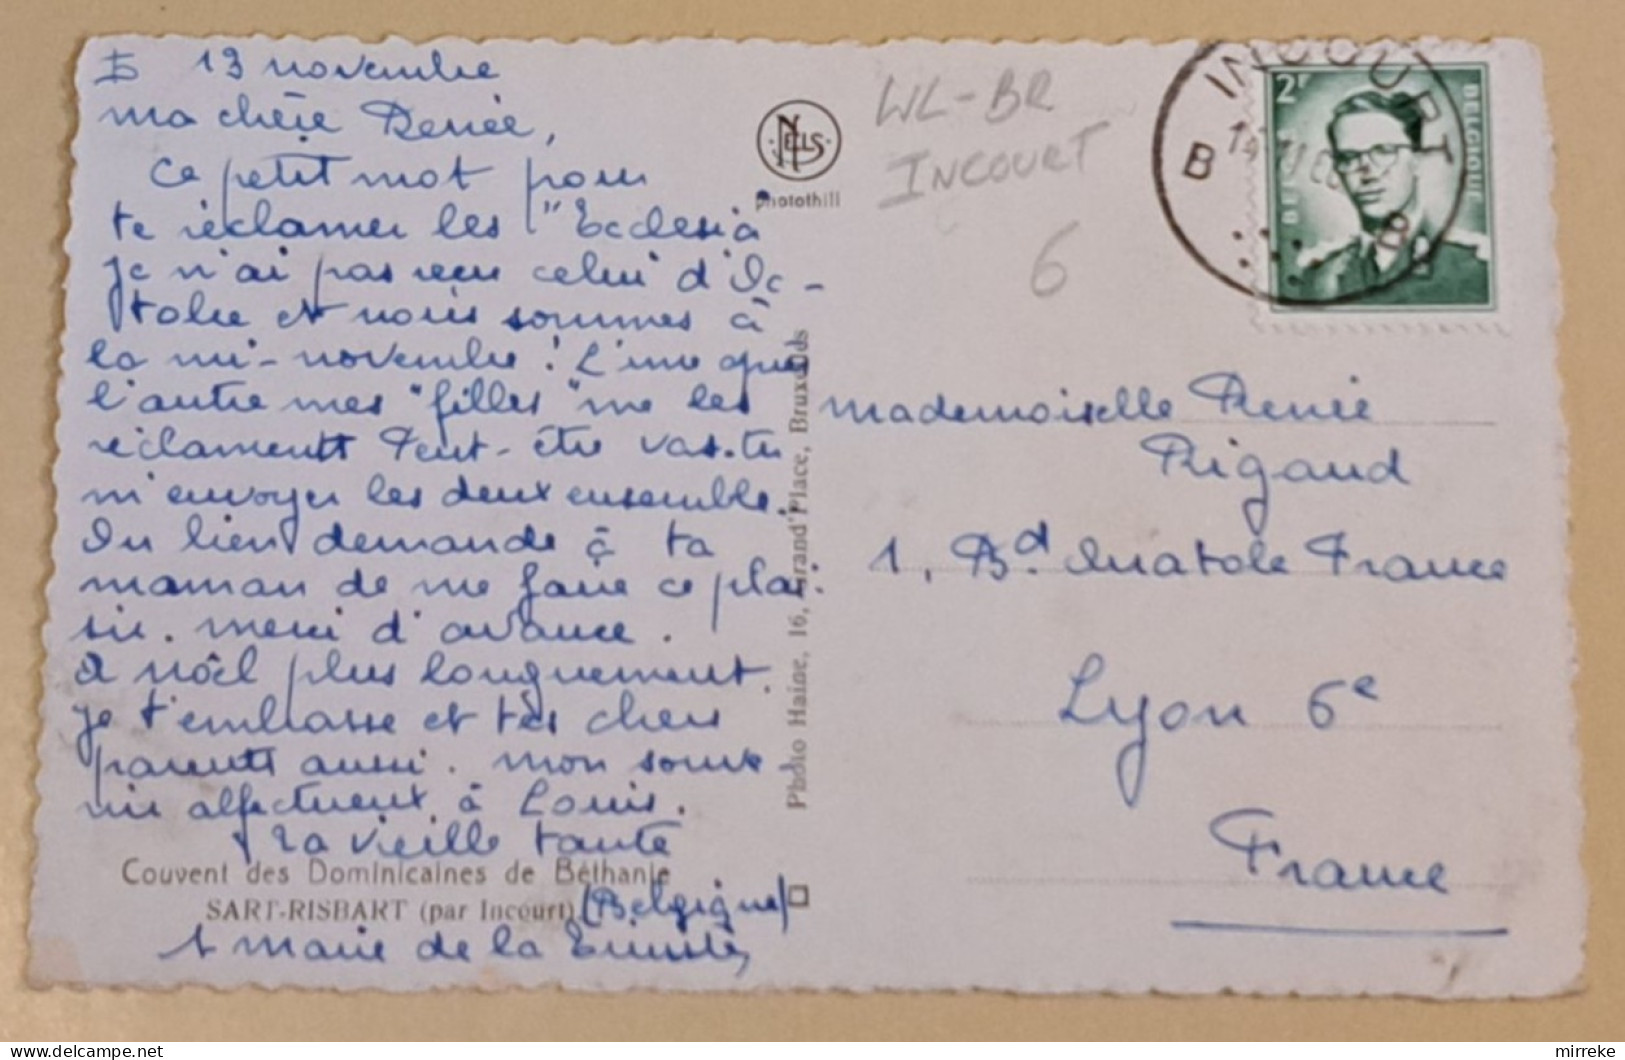 13 novembre
ma chère Renée,
Ce petit mot pour
te réclamer les "Ecclesia
je n'ai pas reçu celui d'Oc-
tobre et nous sommes à
la mi-novembre! L'une après
l'autre mes "filles" me les
réclament Peut-être vas-tu
m'envoyer les deux ensemble.
Ou bien demande à ta
maman de me faire ce plai-
sir. merci d'avance.
A Noël plus longuement.
je t'embrasse et tes chers
parents aussi. mon souve-
nir affectueux à Louis.
ta vieille tante
Couvent des Dominicaines de Béthanie
SART-RISBART (par Incourt) (Belgique)
Marie de la Trinité
NELS
photothill
Photo Haine, 16, Grand'Place, Bruxelles
WL-BR
INCOURT
6
INCOURT
B
2F
BELGIQUE
BELGIE
mademoiselle Renée
Rigaud
1, Bd. Anatole France
Lyon 6e
France
mirreke